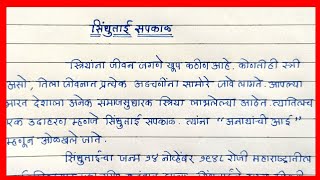 सिंधुताई सपकाळ
स्त्रियांना जीवन जगणे खूप कठीण आहे. कोणतीही स्त्री
असो, तिला जीवनात प्रत्येक अडचणींना सामोरे जावे लागते. आपल्या
भारत देशाला अनेक समाजसुधारक स्त्रिया लाभलेल्या आहेत. त्यातीलच
एक उदाहरण म्हणजे सिंधुताई सपकाळ. त्यांना "अनाथांची आई"
म्हणून ओळखले जाते.
सिंधुताईंचा जन्म १४ नोव्हेंबर १९४८ रोजी महाराष्ट्रातील